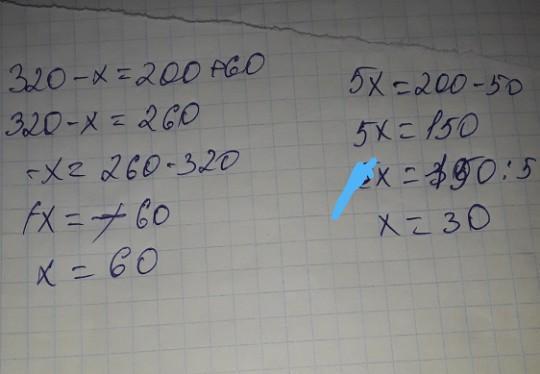 320-x=200+60
320-x=260
-x=260-320
-x=-60
x=60
5x=200-50
5x=150
x=150:5
x=30